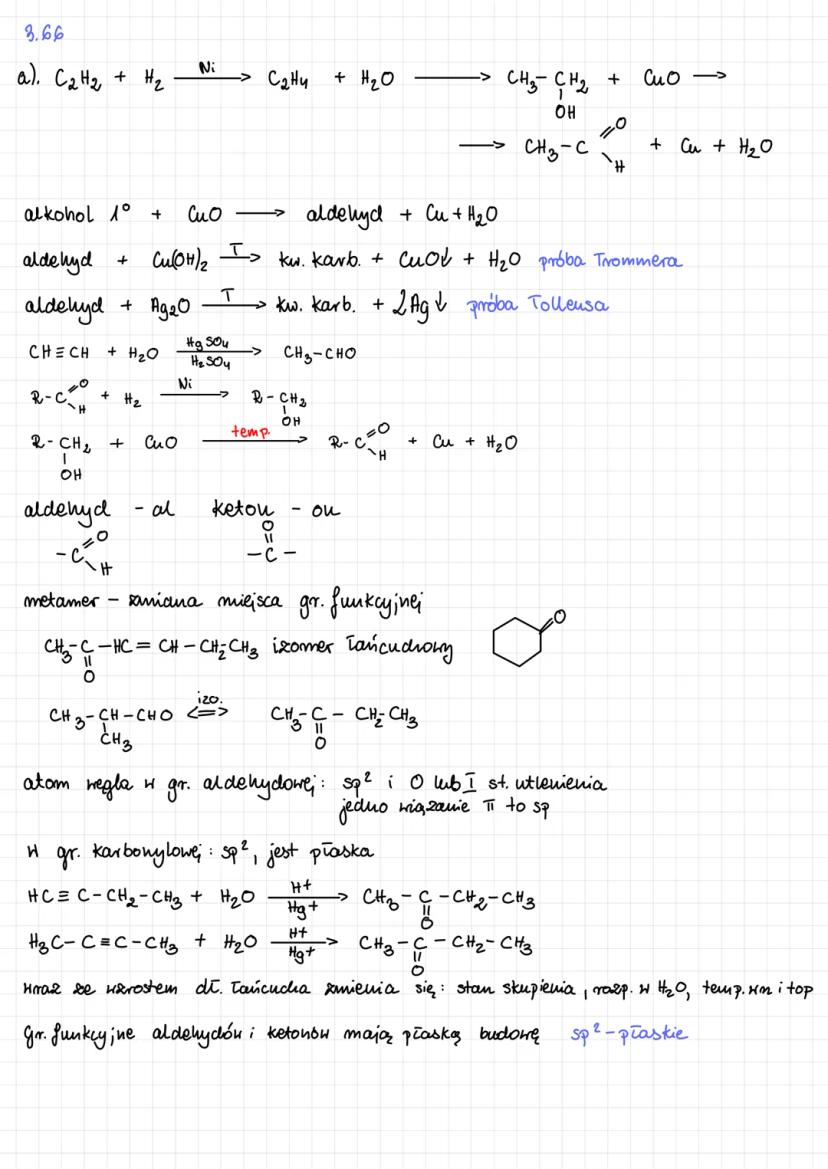 3.66
a). C₂H₂ + H₂ —Ni→ C₂H₄ + H₂O ⟶ CH₃-CH₂ + CuO ⟶
OH
⟶ CH₃-C =O + Cu + H₂O
H
alkohol 1° + CuO ⟶ aldehyd + Cu + H₂O
aldehyd + Cu(OH)₂ —T→ kw. karb. + CuO↓ + H₂O próba Trommera
aldehyd + Ag₂O —T→ kw. karb. + 2Ag↓ próba Tollensa
CH≡CH + H₂O —HgSO₄/H₂SO₄→ CH₃-CHO
R-C =O H + H₂ —Ni→ R-CH₂
OH
R-CH₂ + CuO —temp.→ R-C =O H + Cu + H₂O
OH
aldehyd - al keton - on
O
-C =O H -C-
metamer - zmiana miejsca gr. funkcyjnej
CH₃-C-HC=CH-CH₂-CH₃ izomer łańcuchowy O
O
CH₃-CH-CHO <=izo.=> CH₃-C-CH₂-CH₃
CH₃ O
atom węgla w gr. aldehydowej: sp² i 0 lub I st. utlenienia
jedno wiązanie π to sp
w gr. karbonylowej: sp², jest płaska
HC≡C-CH₂-CH₃ + H₂O —H+/Hg+→ CH₃-C-CH₂-CH₃
O
H₃C-C≡C-CH₃ + H₂O —H+/Hg+→ CH₃-C-CH₂-CH₃
O
wraz ze wzrostem dł. łańcucha zmienia się: stan skupienia, rozp. w H₂O, temp. wrz i top
Gr. funkcyjne aldehydów i ketonów mają płaską budowę sp²-płaskie